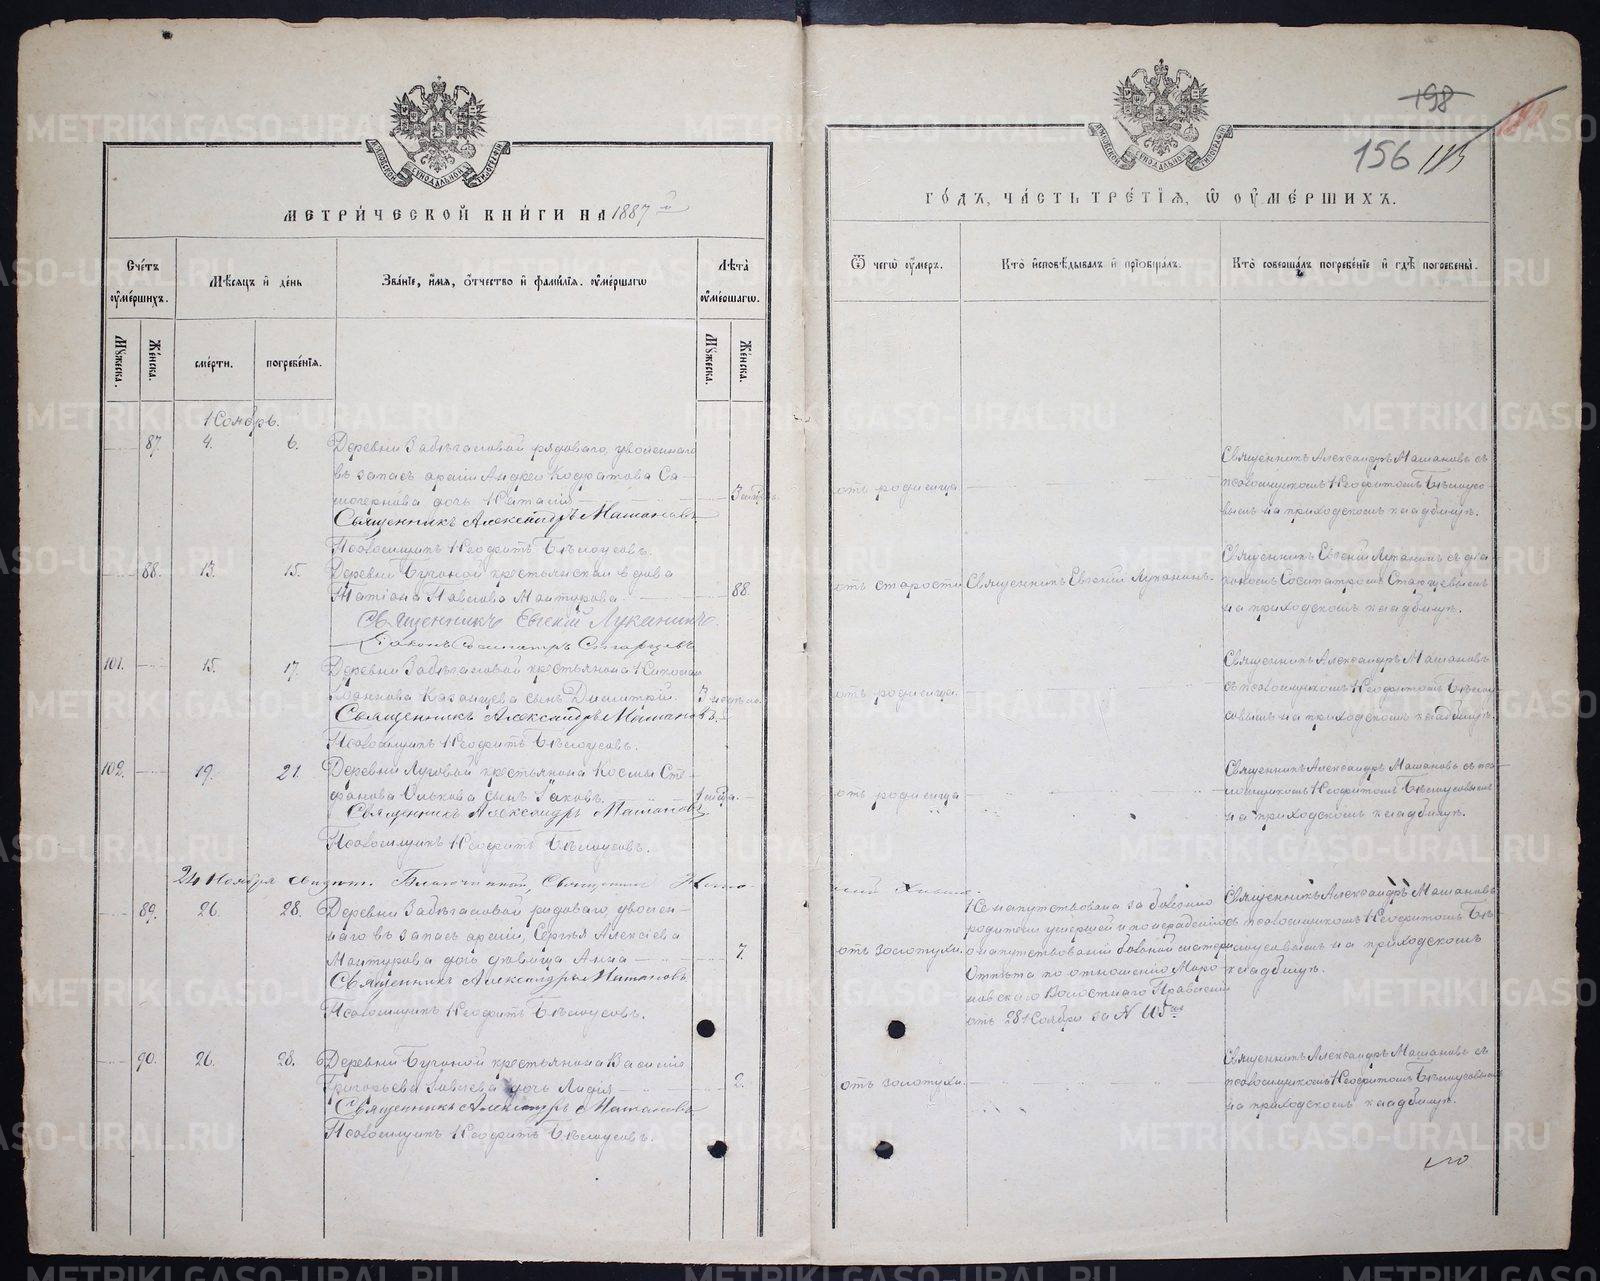 МЕТРИ́ЧЕСКОЙ КНИ́ГИ НА 1887 й
ГО́ДЪ, ЧА́СТЬ ТРЕ́ТІЯ, Ѡ ОУ҆МЕ́РШИХЪ.
198
156
Сче́тъ оу҆ме́ршихъ.
Мѣ́сяцъ и҆ де́нь
Зва́нїе, и҆́мя, ѻ҆́тчество и҆ фами́лїя оу҆ме́ршагѡ
Лѣ́та оу҆ме́ршагѡ.
Ѿ чегѡ̀ оу҆́меръ.
Кто̀ и҆сповѣ́дывалъ и҆ прїѻбща́лъ.
Кто̀ соверша́лъ погребе́нїе и҆ гдѣ̀ погребены̀.
Мꙋ́жеска.
Же́нска.
сме́рти.
погребе́нїя.
Мꙋ́жеска.
Же́нска.
Ноябрь.
87. 4. 6. Деревни Забѣгаловой рядоваго, уволеннаго
въ запасъ арміи Андрея Кодратова Са-
мочернова дочь Наталія
Священникъ Александръ Машановъ
Псаломщикъ Неофитъ Бѣлоусовъ.
отъ родимца
Священникъ Александръ Машановъ съ
псаломщикомъ Неофитомъ Бѣлоусо-
вымъ на приходскомъ кладбищѣ.
88. 13. 15. Деревни Бугоной крестьянская вдова
Татіана Павлова Мантурова. 88.
Священникъ Евгеній Луканинъ.
Діаконъ Сосипатръ Старцевъ
отъ старости
Священникъ Евгеній Луканинъ.
Священникъ Евгеній Луканинъ съ діа-
кономъ Сосипатромъ Старцевымъ
на приходскомъ кладбищѣ.
101. 15. 17. Деревни Забѣгаловой крестьянина Николая
Іоаннова Казанцева сынъ Димитрій
Священникъ Александръ Машановъ
Псаломщикъ Неофитъ Бѣлоусовъ.
отъ родимца.
Священникъ Александръ Машановъ
съ псаломщикомъ Неофитомъ Бѣлоу-
совымъ на приходскомъ кладбищѣ.
102. 19. 21. Деревни Луговой крестьянина Космы Сте-
фанова Олькова сынъ Іаковъ
Священникъ Александръ Машановъ
Псаломщикъ Неофитъ Бѣлоусовъ.
отъ родимца
Священникъ Александръ Машановъ съ пса-
ломщикомъ Неофитомъ Бѣлоусовымъ
на приходскомъ кладбищѣ.
24 Ноября Благочинный, Священникъ
89. 26. 28. Деревни Забѣгаловой рядоваго, уволен-
наго въ запасъ арміи, Сергѣя Алексіева
Мантурова дочь дѣвица Анна 7.
Священникъ Александръ Машановъ
Псаломщикъ Неофитъ Бѣлоусовъ.
отъ золотухи.
Не напутствована за болѣзнію
родители умершей и по нерадѣнію
о напутствованіи больной матери
Отпѣта по отношенію Маро-
новскаго Волостнаго Правленія
отъ 28 Ноября за №
Священникъ Александръ Машановъ
съ псаломщикомъ Неофитомъ Бѣ-
лоусовымъ на приходскомъ
кладбищѣ.
90. 26. 28. Деревни Бугоной крестьянина Василія
Григорьева дочь Лидія 2.
Священникъ Александръ Машановъ
Псаломщикъ Неофитъ Бѣлоусовъ.
отъ золотухи.
Священникъ Александръ Машановъ съ
псаломщикомъ Неофитомъ Бѣлоусовымъ
на приходскомъ кладбищѣ.
METRIKI.GASO-URAL.RU